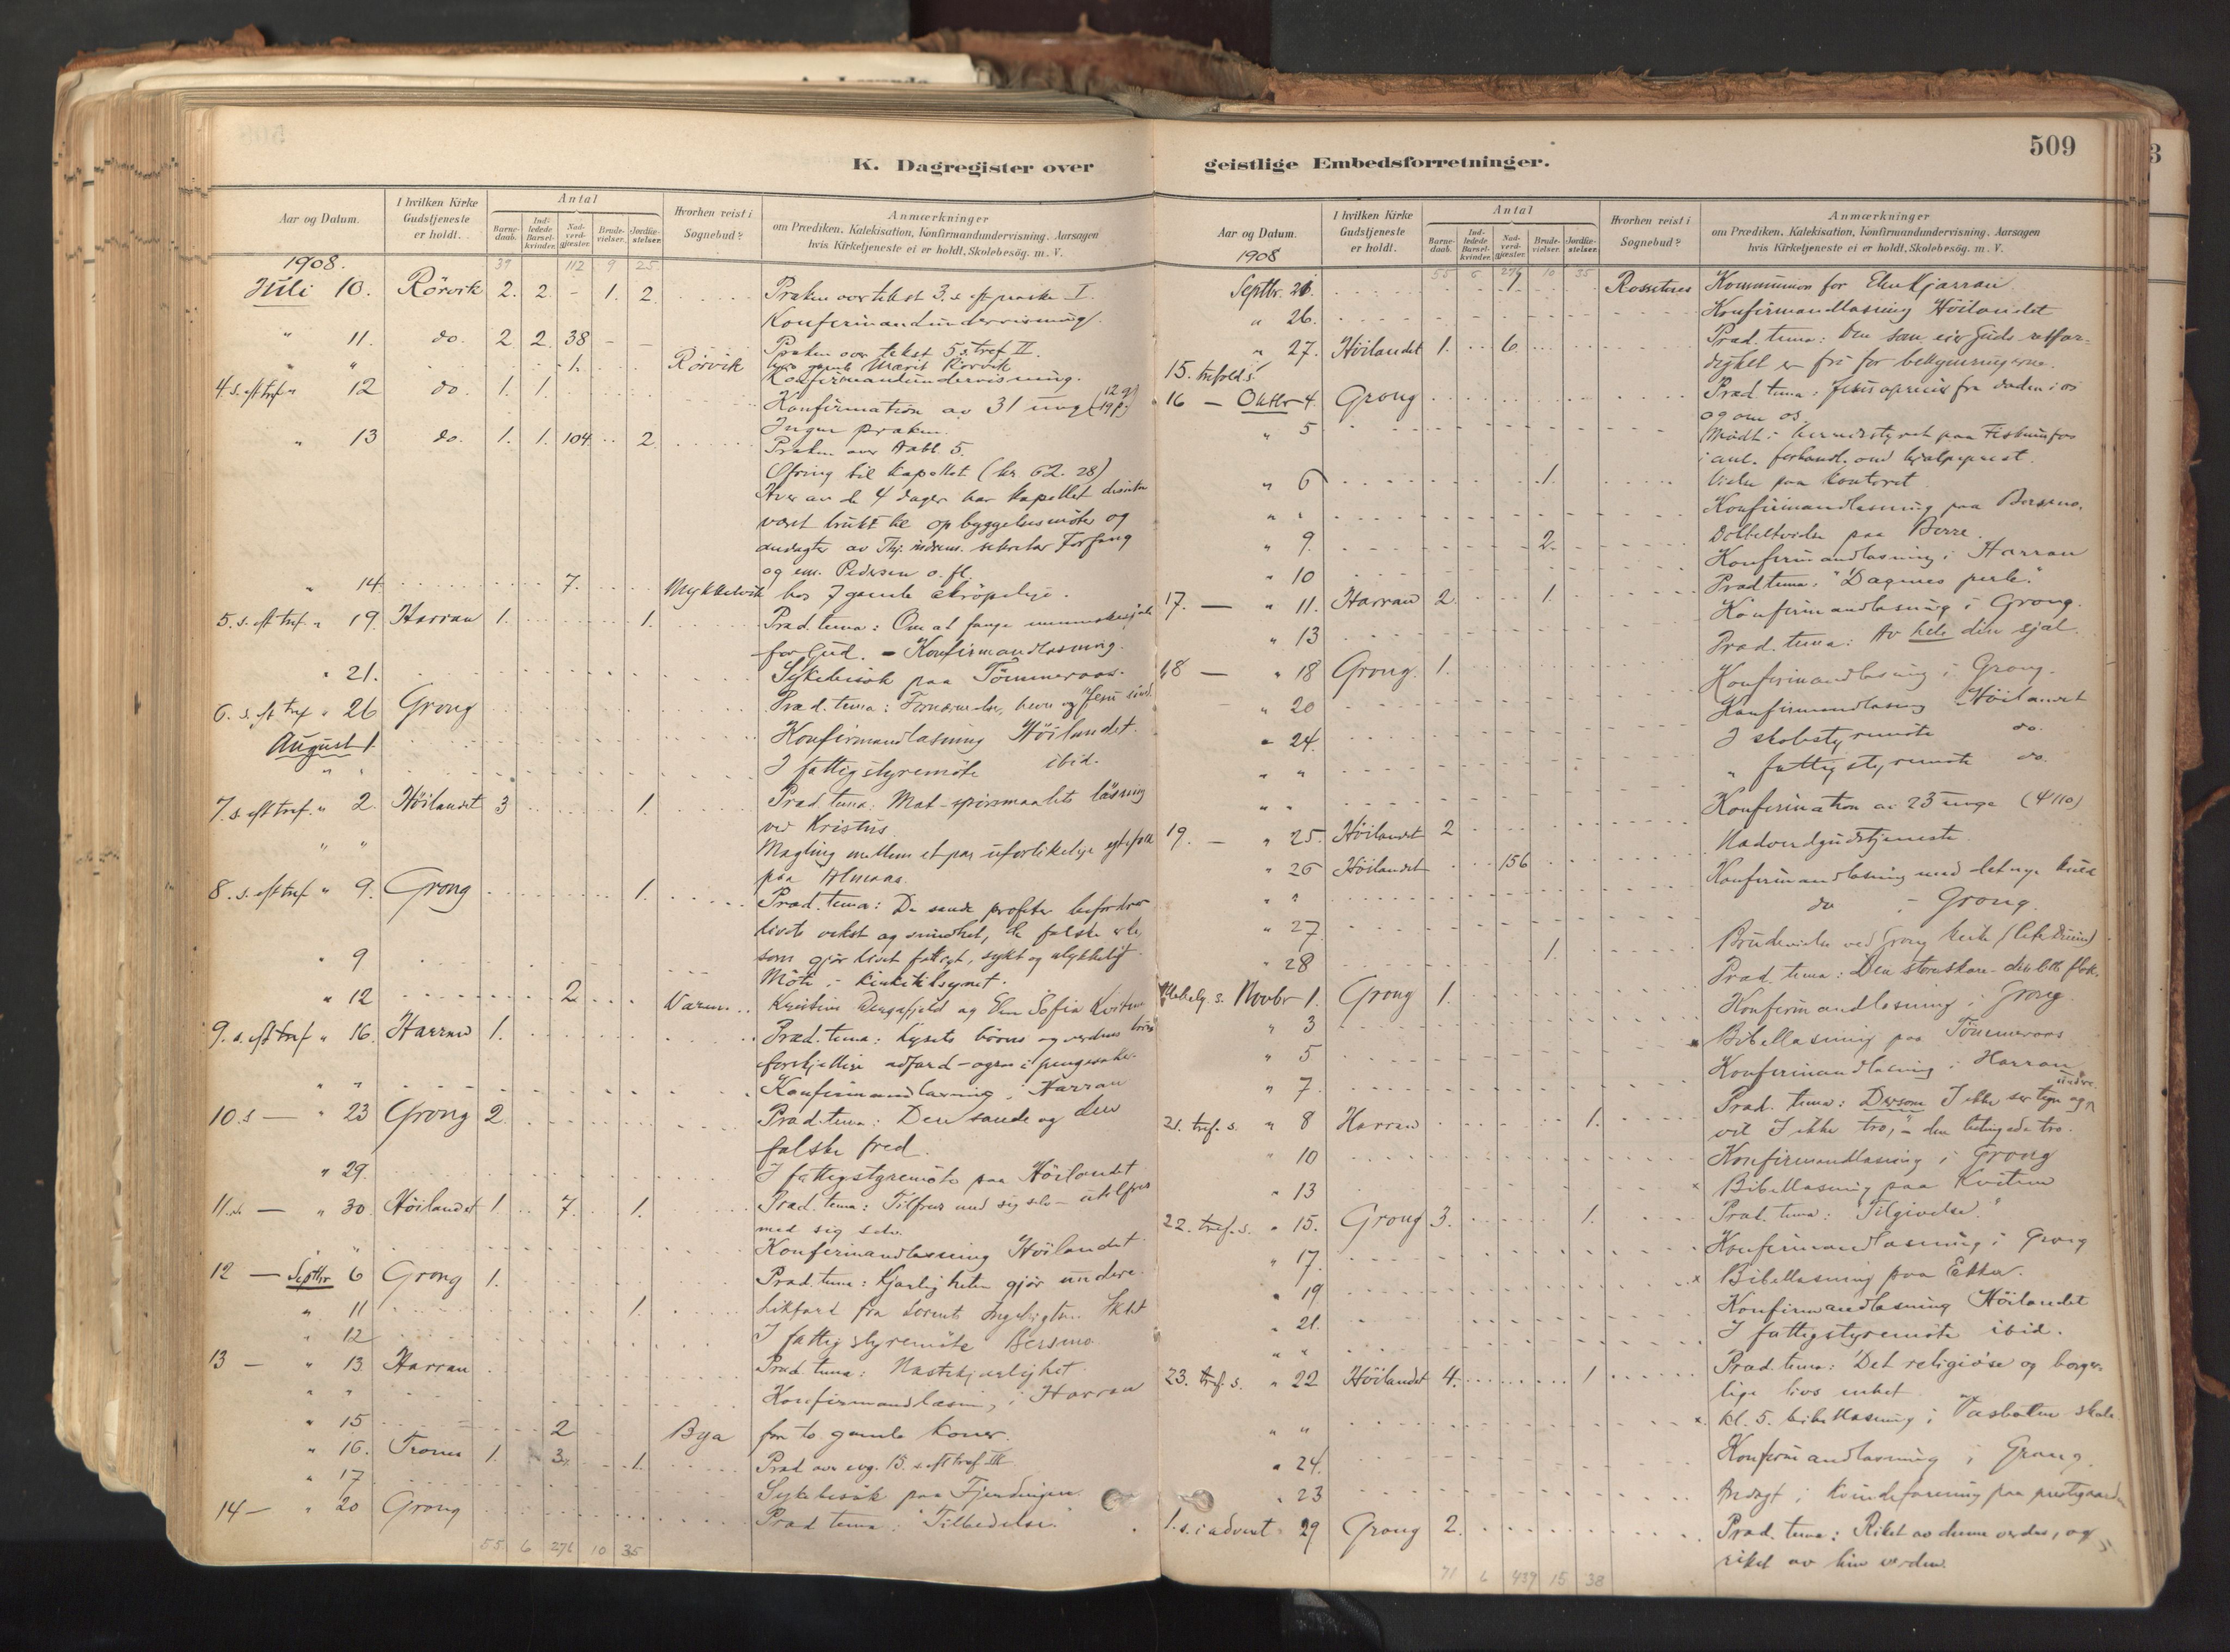 509
K. Dagregister over geistlige Embedsforretninger.
Aar og Datum.
I hvilken Kirke Gudstjeneste er holdt.
Antal
Barne-daab.
Ind-ledede Barsel-kvinder.
Nad-verd-gjæster.
Brude-vielser.
Jordfæ-stelser.
Hvorhen reist i Sognebud?
Anmærkninger
om Prædiken. Katekisation, Konfirmandundervisning. Aarsagen
hvis Kirketjeneste ei er holdt, Skolebesög. m. V.
1908. 39 112 9 25
Juli 10. Rörvik 2. 2. - 1. 2. Præken over tekst 3. s. eft. paaske I.
Konfirmandundervisning.
" 11. do. 2. 2. 38 - - Præken over tekst 5 s. tref. II.
" " 1. Rörvik hos gamle Marit Rörvik
Konfirmandundervisning.
4. s. eft. tref. " 12 do. 1. 1. Konfirmation av 31 ung (12 g 19 p)
Ingen præken.
" 13 do. 1. 1. 104 2. Præken over 5.
Ofring til kapellet (kr 62.28)
Hver av de 4 dager har kapellet desuten
været brukt til opbyggelsesmöter og
andagter av Thj. indrem. sekretær Forfang
og em. Pedersen o. fl.
" 14. 7. Mykkelvik hos 7 gamle skröpelige.
5. s. eft. tref. " 19. Harran 1. 1. Præd. tema: Om at fange menneskesjæle
for Gud. - Konfirmandlæsning.
" 21. Sykebesök paa Tömmeraas.
6. s. eft. tref. " 26 Grong Præd. tema: Fornærmelse, hevn og Jesu sind.
August 1. Konfirmandlæsning Höilandet.
" " I fattigstyremöte ibid.
7. s. eft. tref. " 2. Höilandet 3 1. Præd. tema: Mat-spörsmaalets lösning
ved Kristus.
" " Mægling mellem et par uforlikelige egtefolk
paa Almaas.
8. s. eft. tref. " 9. Grong 1. Præd. tema: De sande profeter befordrer
livets vekst og sundhet, de falske er de,
som gjör livet fattigt, sykt og ulykkelig.
" 9 Möte i kirketilsynet.
" 12 2. Kristine og Elen Sofia Kvitem
9. s. eft. tref. " 16. Harran 1. Præd. tema: Lysets börns og verdens börns
forskjellige adfærd - ogsaa i pengesaker.
" " Konfirmandlæsning i Harran
10. s - " 23 Grong 2. Præd. tema: Den sande og den
falske fred.
" 29. I fattigstyremöte paa Höilandet
11. s. - " 30. Höilandet 1. 7. 1. Præd. tema: Tilfreds med sig selv - utilfreds
med sig selv.
" " Konfirmandlæsning Höilandet
12 - Septbr 6 Grong 1. Præd. tema: Kjærligheten gjör undere.
" 11 1. Likfærd fra
" 12 I fattigstyremöte Bersmo
13 - " 13 Harran Præd. tema: Næstekjærlighet.
" " Konfirmandlæsning i Harran
" 15 2 Bya for to gamle koner.
" 16. Trones 1. 3. 1. Præd. over evg. 13. s. eft. tref. III
" 17 Sykebesök paa Fjerdingen.
14 - " 20 Grong Præd. tema: "Tilbedelse."
55 6 276 10 35
Aar og Datum.
I hvilken Kirke Gudstjeneste er holdt.
Antal
Barne-daab.
Ind-ledede Barsel-kvinder.
Nad-verd-gjæster.
Brude-vielser.
Jordfæ-stelser.
Hvorhen reist i Sognebud?
Anmærkninger
om Prædiken. Katekisation, Konfirmandundervisning. Aarsagen
hvis Kirketjeneste ei er holdt, Skolebesög. m. V.
1908 55 6 276 10 35
Septbr. 21. 1. Rossetnes Kommunion for Elen Kjærran
" 26. Konfirmandlæsning Höilandet
" 27. Höilandet 1. 6. Præd. tema: Den som eier Guds retfær-
dighet er fri for bekymringerne.
15. trefold. s.
16 - Oktbr 4. Grong Præd. tema: Jesus opreiser fra döden i os
og om os.
" 5 Mödt i herredstyret paa Fiskumfos
i anl. forhandl. om hjælpeprest.
" 6 1. Vielse paa kontoret
" " Konfirmandlæsning paa Bersmo.
" 9. 2. Dobbeltvielse paa Berre.
" 10 Konfirmandlæsning i Harran
17. - " 11. Harran 2. 1. Præd. tema: "Dagenes perle."
" 13 Konfirmandlæsning i Grong.
18 - " 18 Grong. 1. Præd. tema: Av hele din sjæl.
" 20 Konfirmandlæsning i Grong.
" 24. Konfirmandlæsning Höilandet
" " I skolestyremöte do.
" " " fattigstyremöte do.
19. - " 25. Höilandet 2 Konfirmation av 23 unge
" 26 Höilandet 156 Nadverdgudstjeneste
" " Konfirmandlæsning med det nye kuld
" 27 do i Grong.
" 28 1. Brudevielse ved Grong kirke
Allehelg. s. Novbr 1. Grong 1. Præd. tema: Den store skare - den lille flok.
" 3 Konfirmandlæsning i Grong
" 5 Bibellæsning paa Tömmeraas
" 7. Konfirmandlæsning i Harran
21. tref. s. " 8 Harran 1. Præd. tema: Dersom I ikke ser tegn og undere
vil I ikke tro," - den betingede tro.
" 10 Konfirmandlæsning i Grong
" 13 x Bibellæsning paa Kvitem
22. tref. s. " 15. Grong 3. 1. Præd. tema: "Tilgivelse."
" 17. Konfirmandlæsning i Grong
" 19 x Bibellæsning paa Ekker.
" 21. Konfirmandlæsning Höilandet
" " I fattigstyremöte ibid.
23. tref. s. " 22 Höilandet 4. 1. Præd. tema: Det religiöse og borger-
lige livs enhet
" " x kl. 5. bibellæsning i skole
" 24. Konfirmandlæsning i Grong.
" 23 Andagt i kvindeforening paa prestgaarden
1. s. i advent " 29 Grong 2. Præd. tema: Riket av denne verden, og
riket av hin verden.
71 6 439 15 38